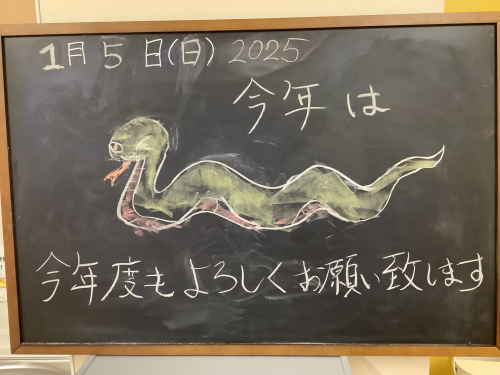 1月5日(日) 2025
今年は
今年度もよろしくお願い致します